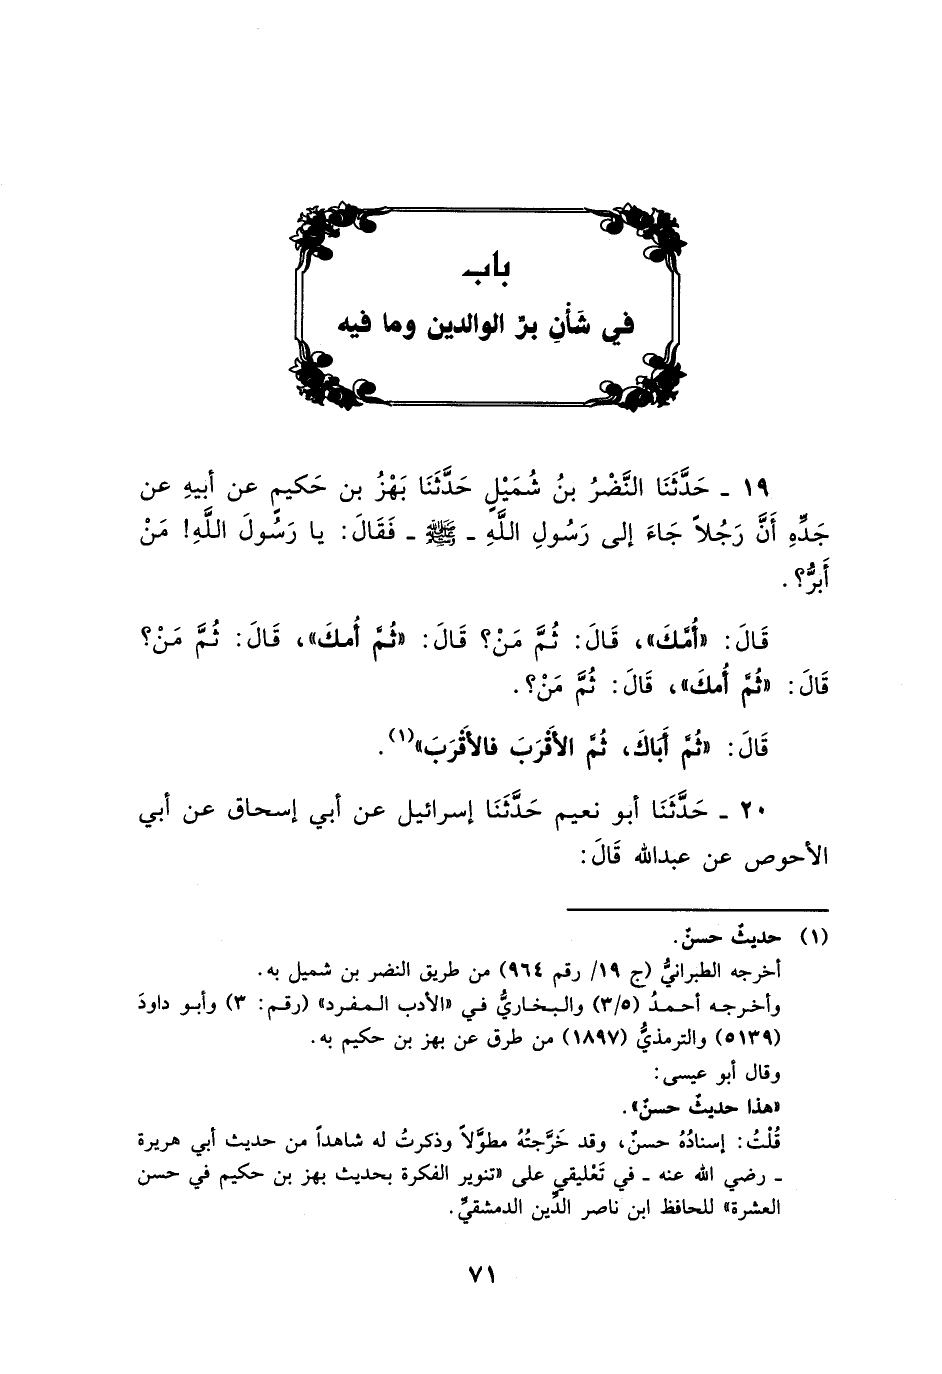 باب
في شَأْنِ برِّ الوالدين وما فيه
١٩ ـ حَدَّثَنَا النَّضْرُ بنُ شُمَيْلٍ حَدَّثَنَا بَهْزُ بن حَكيمٍ عن أبيهِ عن
جَدِّهِ أَنَّ رَجُلاً جَاءَ إلى رَسُولِ اللَّهِ ـ ﷺ ـ فَقَالَ: يا رَسُولَ اللَّهِ! مَنْ
أَبرُّ؟.
قَالَ: «أُمَّكَ»، قَالَ: ثُمَّ مَنْ؟ قَالَ: «ثُمَّ أُمكَ»، قَالَ: ثُمَّ مَنْ؟
قَالَ: «ثُمَّ أُمكَ»، قَالَ: ثُمَّ مَنْ؟.
قَالَ: «ثُمَّ أَبَاكَ، ثُمَّ الأَقْرَبَ فالأَقْرَبَ»(١).
٢٠ ـ حَدَّثَنَا أبو نعيم حَدَّثَنَا إسرائيل عن أبي إسحاق عن أبي
الأحوص عن عبدالله قَالَ:
(١) حديثٌ حسنٌ.
أخرجه الطبرانيُّ (ج ١٩/ رقم ٩٦٤) من طريق النضر بن شميل به.
وأخرجه أحمدُ (٣/٥) والبخاريُّ في «الأدب المفرد» (رقم: ٣) وأبو داودَ
(٥١٣٩) والترمذيُّ (١٨٩٧) من طرق عن بهز بن حكيم به.
وقال أبو عيسى:
«هذا حديثٌ حسنٌ».
قُلْتُ: إسنادُهُ حسنٌ، وقد خَرَّجتُهُ مطوَّلاً وذكرتُ له شاهداً من حديث أبي هريرة
ـ رضي الله عنه ـ في تَعْليقي على «تنوير الفكرة بحديث بهز بن حكيم في حسن
العشرة» للحافظ ابن ناصر الدِّين الدمشقيِّ.
٧١